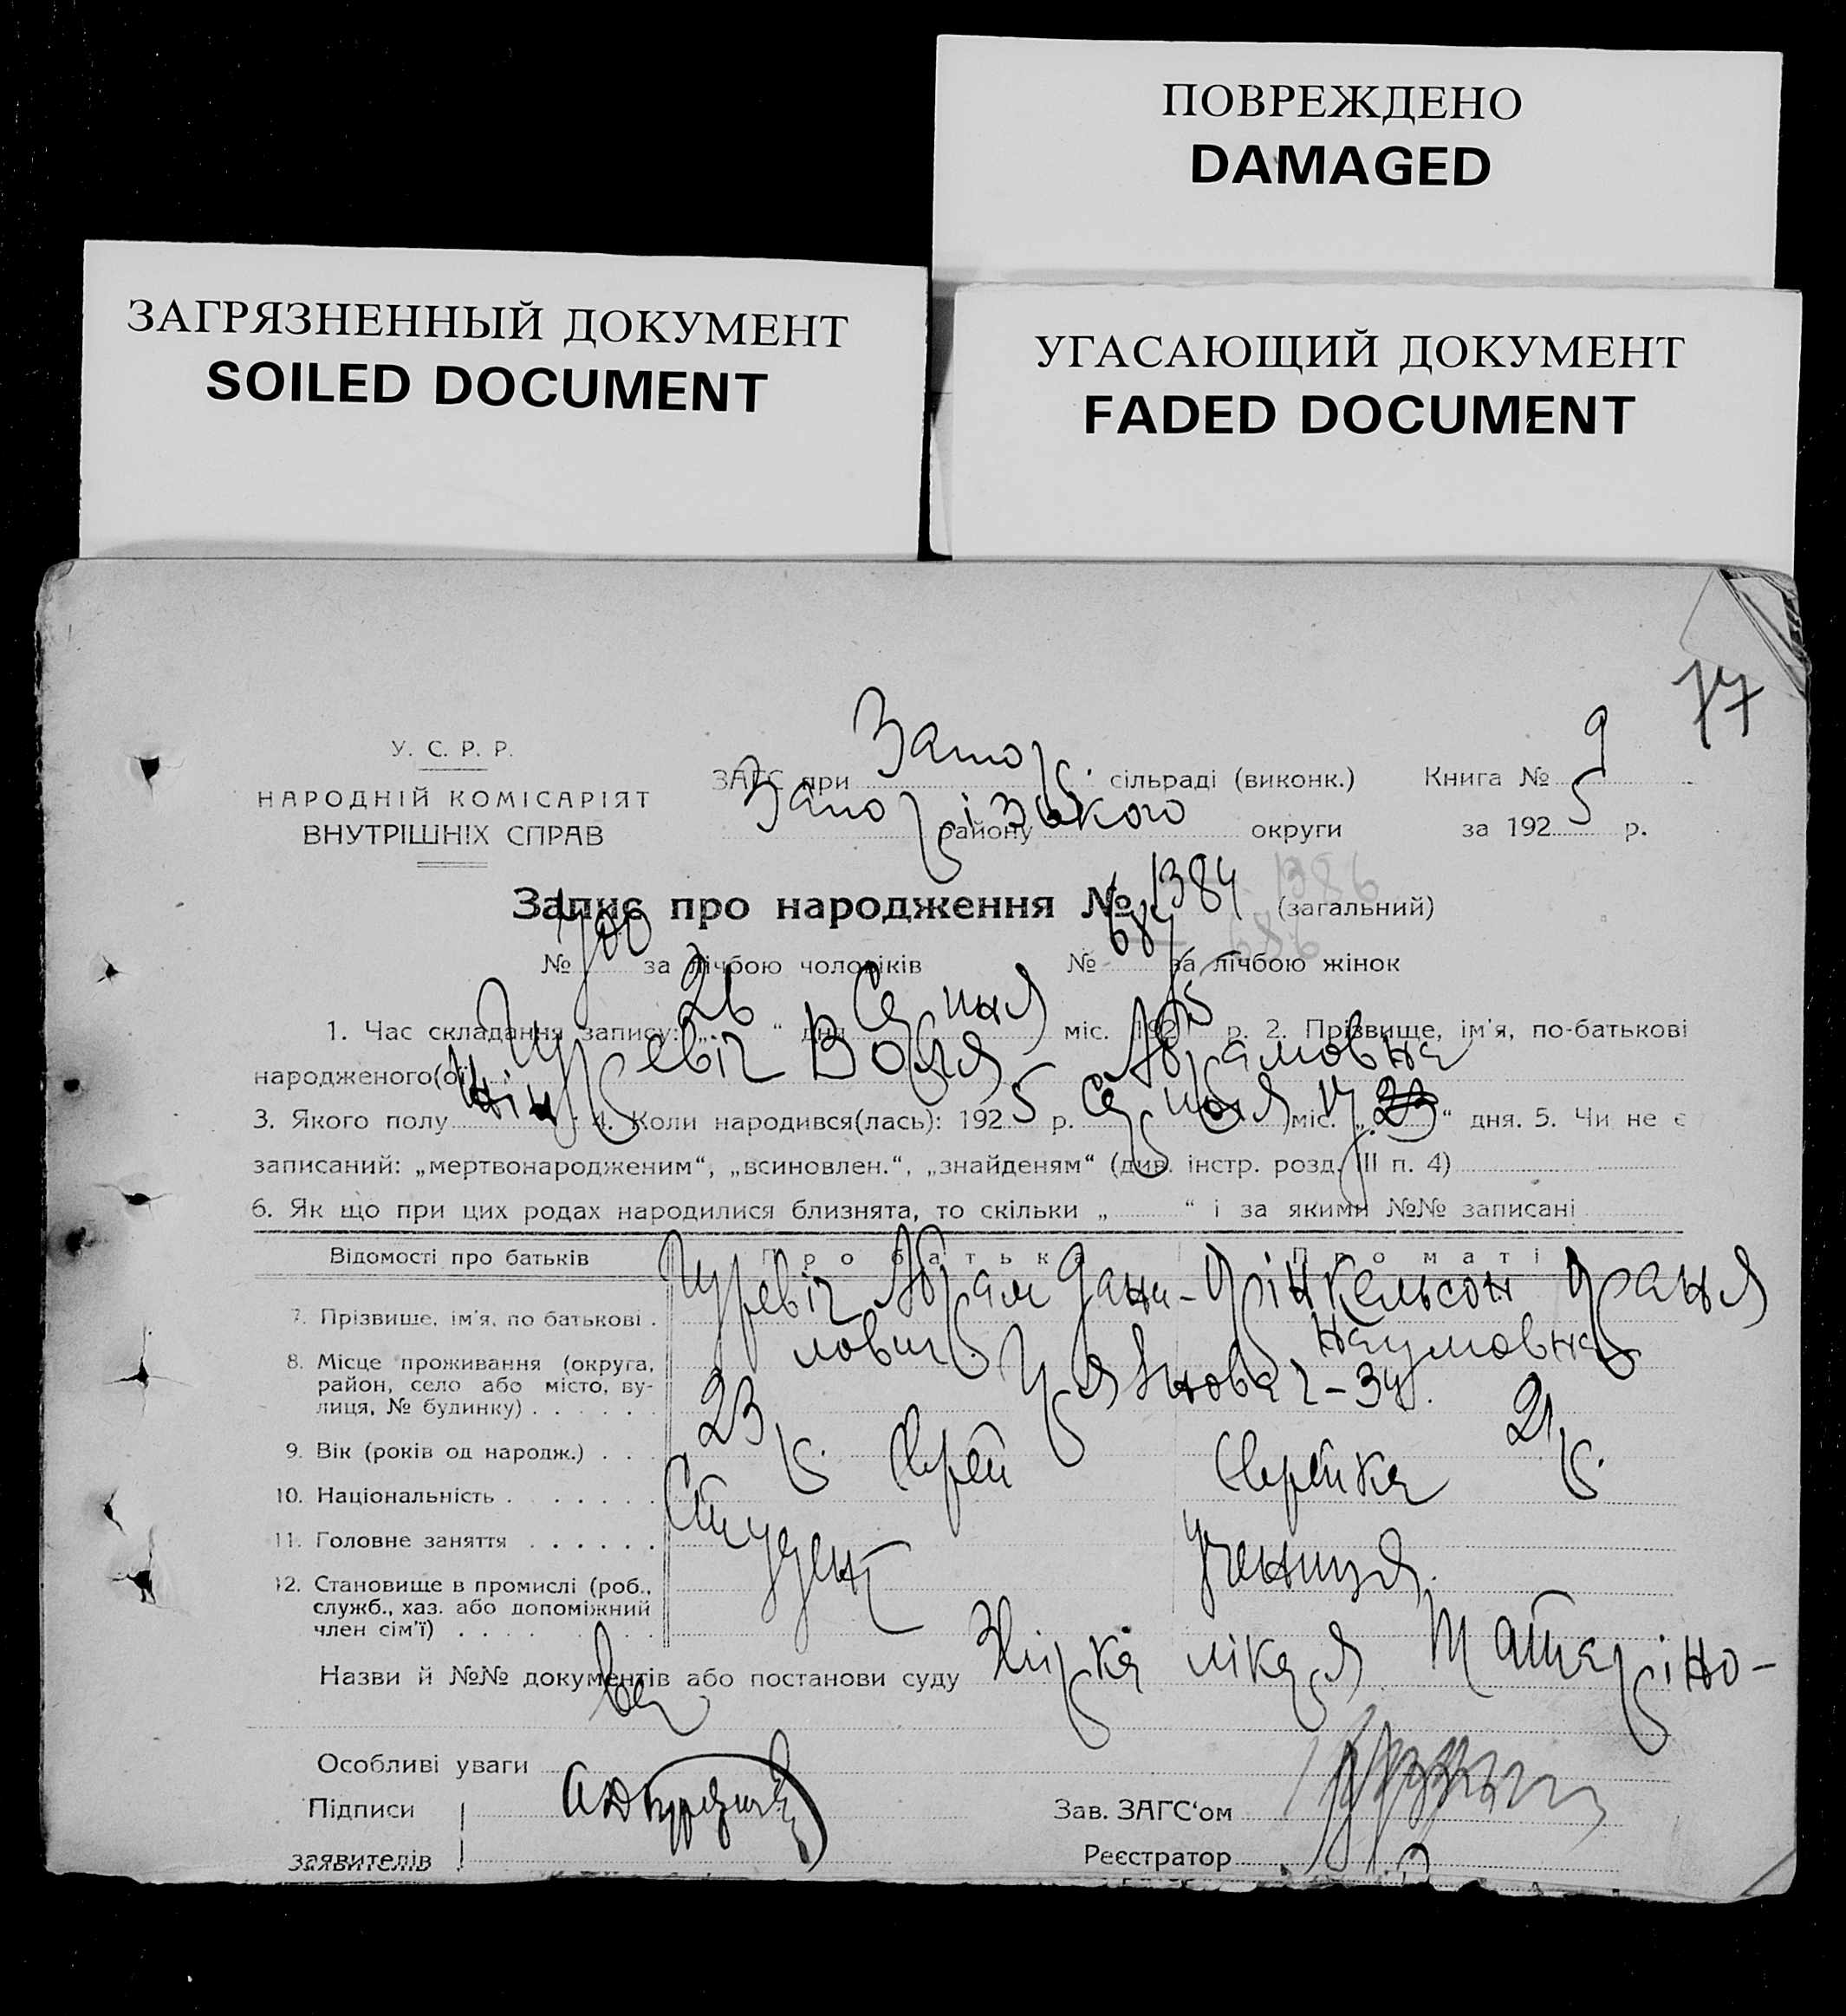 ПОВРЕЖДЕНО
DAMAGED
ЗАГРЯЗНЕННЫЙ ДОКУМЕНТ
SOILED DOCUMENT
УГАСАЮЩИЙ ДОКУМЕНТ
FADED DOCUMENT
У. С. Р. Р.
НАРОДНІЙ КОМІСАРІЯТ
ВНУТРІШНІХ СПРАВ
ЗАГС при Запор. сільраді (виконк.)
Запорізького району округи
Книга № 9
за 1925 р.
77
Запис про народження № 1384 (загальний) 1386
№ 700 за лічбою чоловіків № 684 за лічбою жінок 686
1. Час складання запису: „26“ дня Серпня міс. 1925 р. 2. Прізвище, ім'я, по-батькові
народженого(ої) Гуревіч Воля Абрамовна
3. Якого полу жін 4. Коли народився(лась): 1925 р. Серпня міс. „17 23“ дня. 5. Чи не є
записаний: „мертвонародженим“, „всиновлен.“, „знайденям“ (див. інстр. розд. III п. 4)
6. Як що при цих родах народилися близнята, то скільки „ “ і за якими №№ записані
Відомості про батьків Про батька Про маті
7. Прізвище, ім'я, по батькові . Гуревіч Абрам Дани- Фрінкельсон Франя
лович Наумовна
8. Місце проживання (округа,
район, село або місто, ву-
лиця, № будинку) . . . . . . 2 – 34.
9. Вік (років од народж.) . . . 23 р. 21 р.
10. Національність . . . . . . . Єврей Єврейка
11. Головне заняття . . . . . . Студент Учениця
12. Становище в промислі (роб.,
служб., хаз. або допоміжний
член сім'ї) . . . . . . . .
Назви й №№ документів або постанови суду лікаря Матеріно-
ва
Особливі уваги
Підписи
заявителів
Зав. ЗАГС'ом
Реєстратор